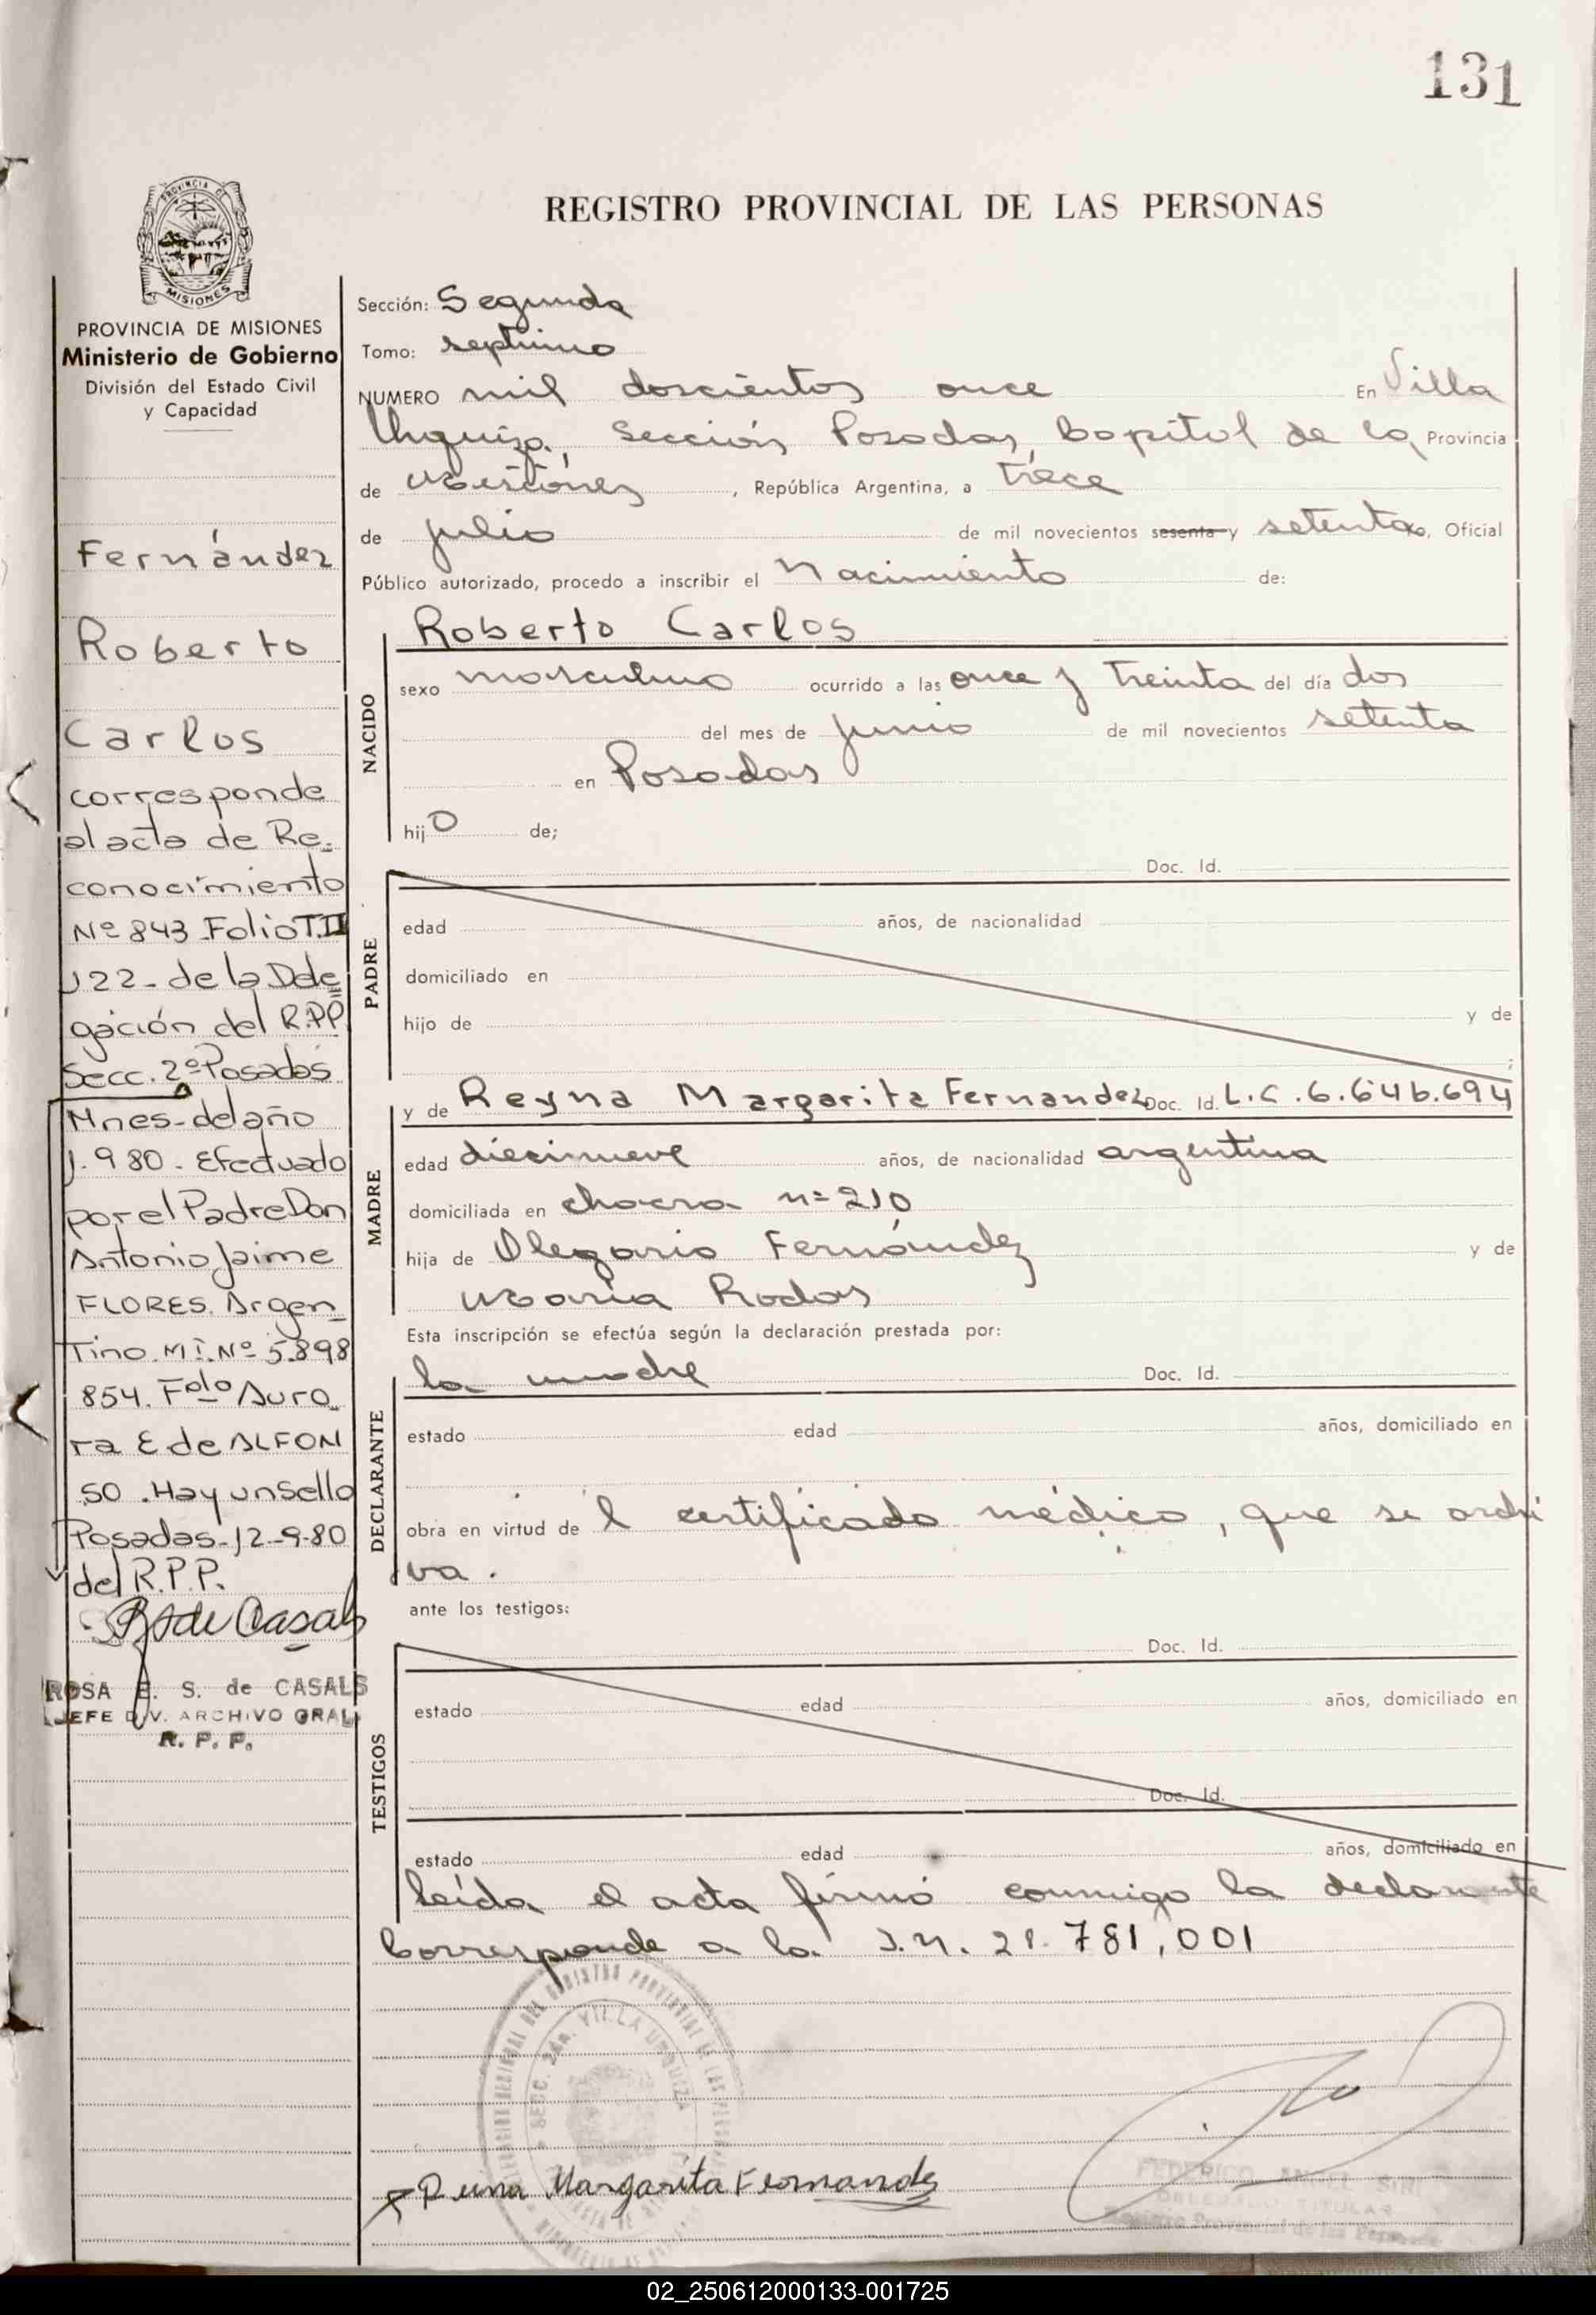 131
REGISTRO PROVINCIAL DE LAS PERSONAS
PROVINCIA DE
MISIONES
PROVINCIA DE MISIONES
Ministerio de Gobierno
División del Estado Civil
y Capacidad
Fernández
Roberto
Carlos
corresponde
al acta de Re-
conocimiento
Nº 843 Folio T.II
122- de la Dele
gación del R.P.P.
Secc. 2º Posadas
Mnes- del año
1.980- Efectuado
por el Padre Don
Antonio Jaime
FLORES. Argen
tino. M.I. Nº 5.898
854. Fdo Auro
ra E de ALFON
SO. Hay un Sello
Posadas-12-9-80
del R.P.P.
ROSA E. S. de CASALS
JEFE DIV. ARCHIVO GRAL.
R. P. P.
Sección: Segunda
Tomo: septimo
NUMERO mil doscientos once En Villa
Urquiza, Sección Posadas, Capital de la Provincia
de Misiones, República Argentina, a trece
de julio de mil novecientos sesenta y setenta, Oficial
Público autorizado, procedo a inscribir el Nacimiento de:
NACIDO
Roberto Carlos
sexo masculino ocurrido a las once y treinta del día dos
del mes de junio de mil novecientos setenta
en Posadas
hijo de;
PADRE
Doc. Id.
edad años, de nacionalidad
domiciliado en
hijo de y de
;
MADRE
y de Reyna Margarita Fernandez Doc. Id. L.C. 6.646.694
edad diecinueve años, de nacionalidad argentina
domiciliada en chacra nº 210
hija de Olegario Fernández y de
María Rodas
Esta inscripción se efectúa según la declaración prestada por:
DECLARANTE
la madre Doc. Id.
estado edad años, domiciliado en
obra en virtud de l certificado médico, que se archi
va.
ante los testigos:
TESTIGOS
Doc. Id.
estado edad años, domiciliado en
Doc. Id.
estado edad años, domiciliado en
Leída el acta firmó conmigo la declarante
Corresponde a la I.N. 21.781,001
SECC. 2da. VILLA URQUIZA
Reina Margarita Fernandez
FEDERICO ANGEL SIRI
DELEGADO TITULAR
Registro Provincial de las Personas
02_250612000133-001725